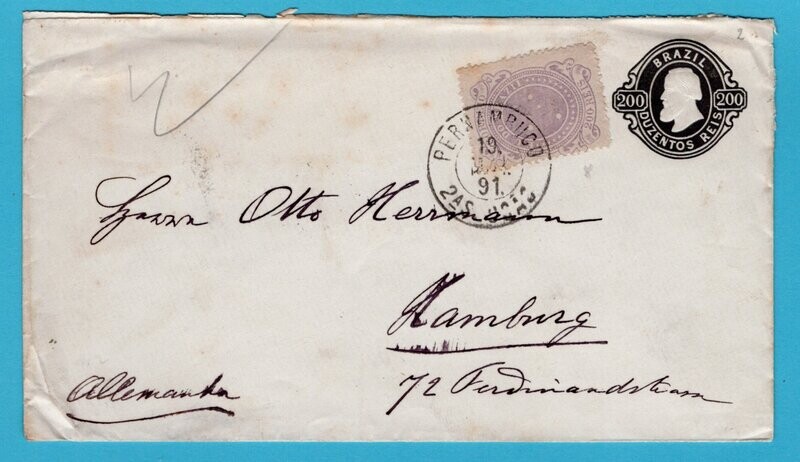 2
BRAZIL
200 200
DUZENTOS REIS
200 REIS
PERNAMBUCO
19.
91.
2AS
Herrn Otto Herrmann
Hamburg
72 Ferdinandstrasse
Allemanha